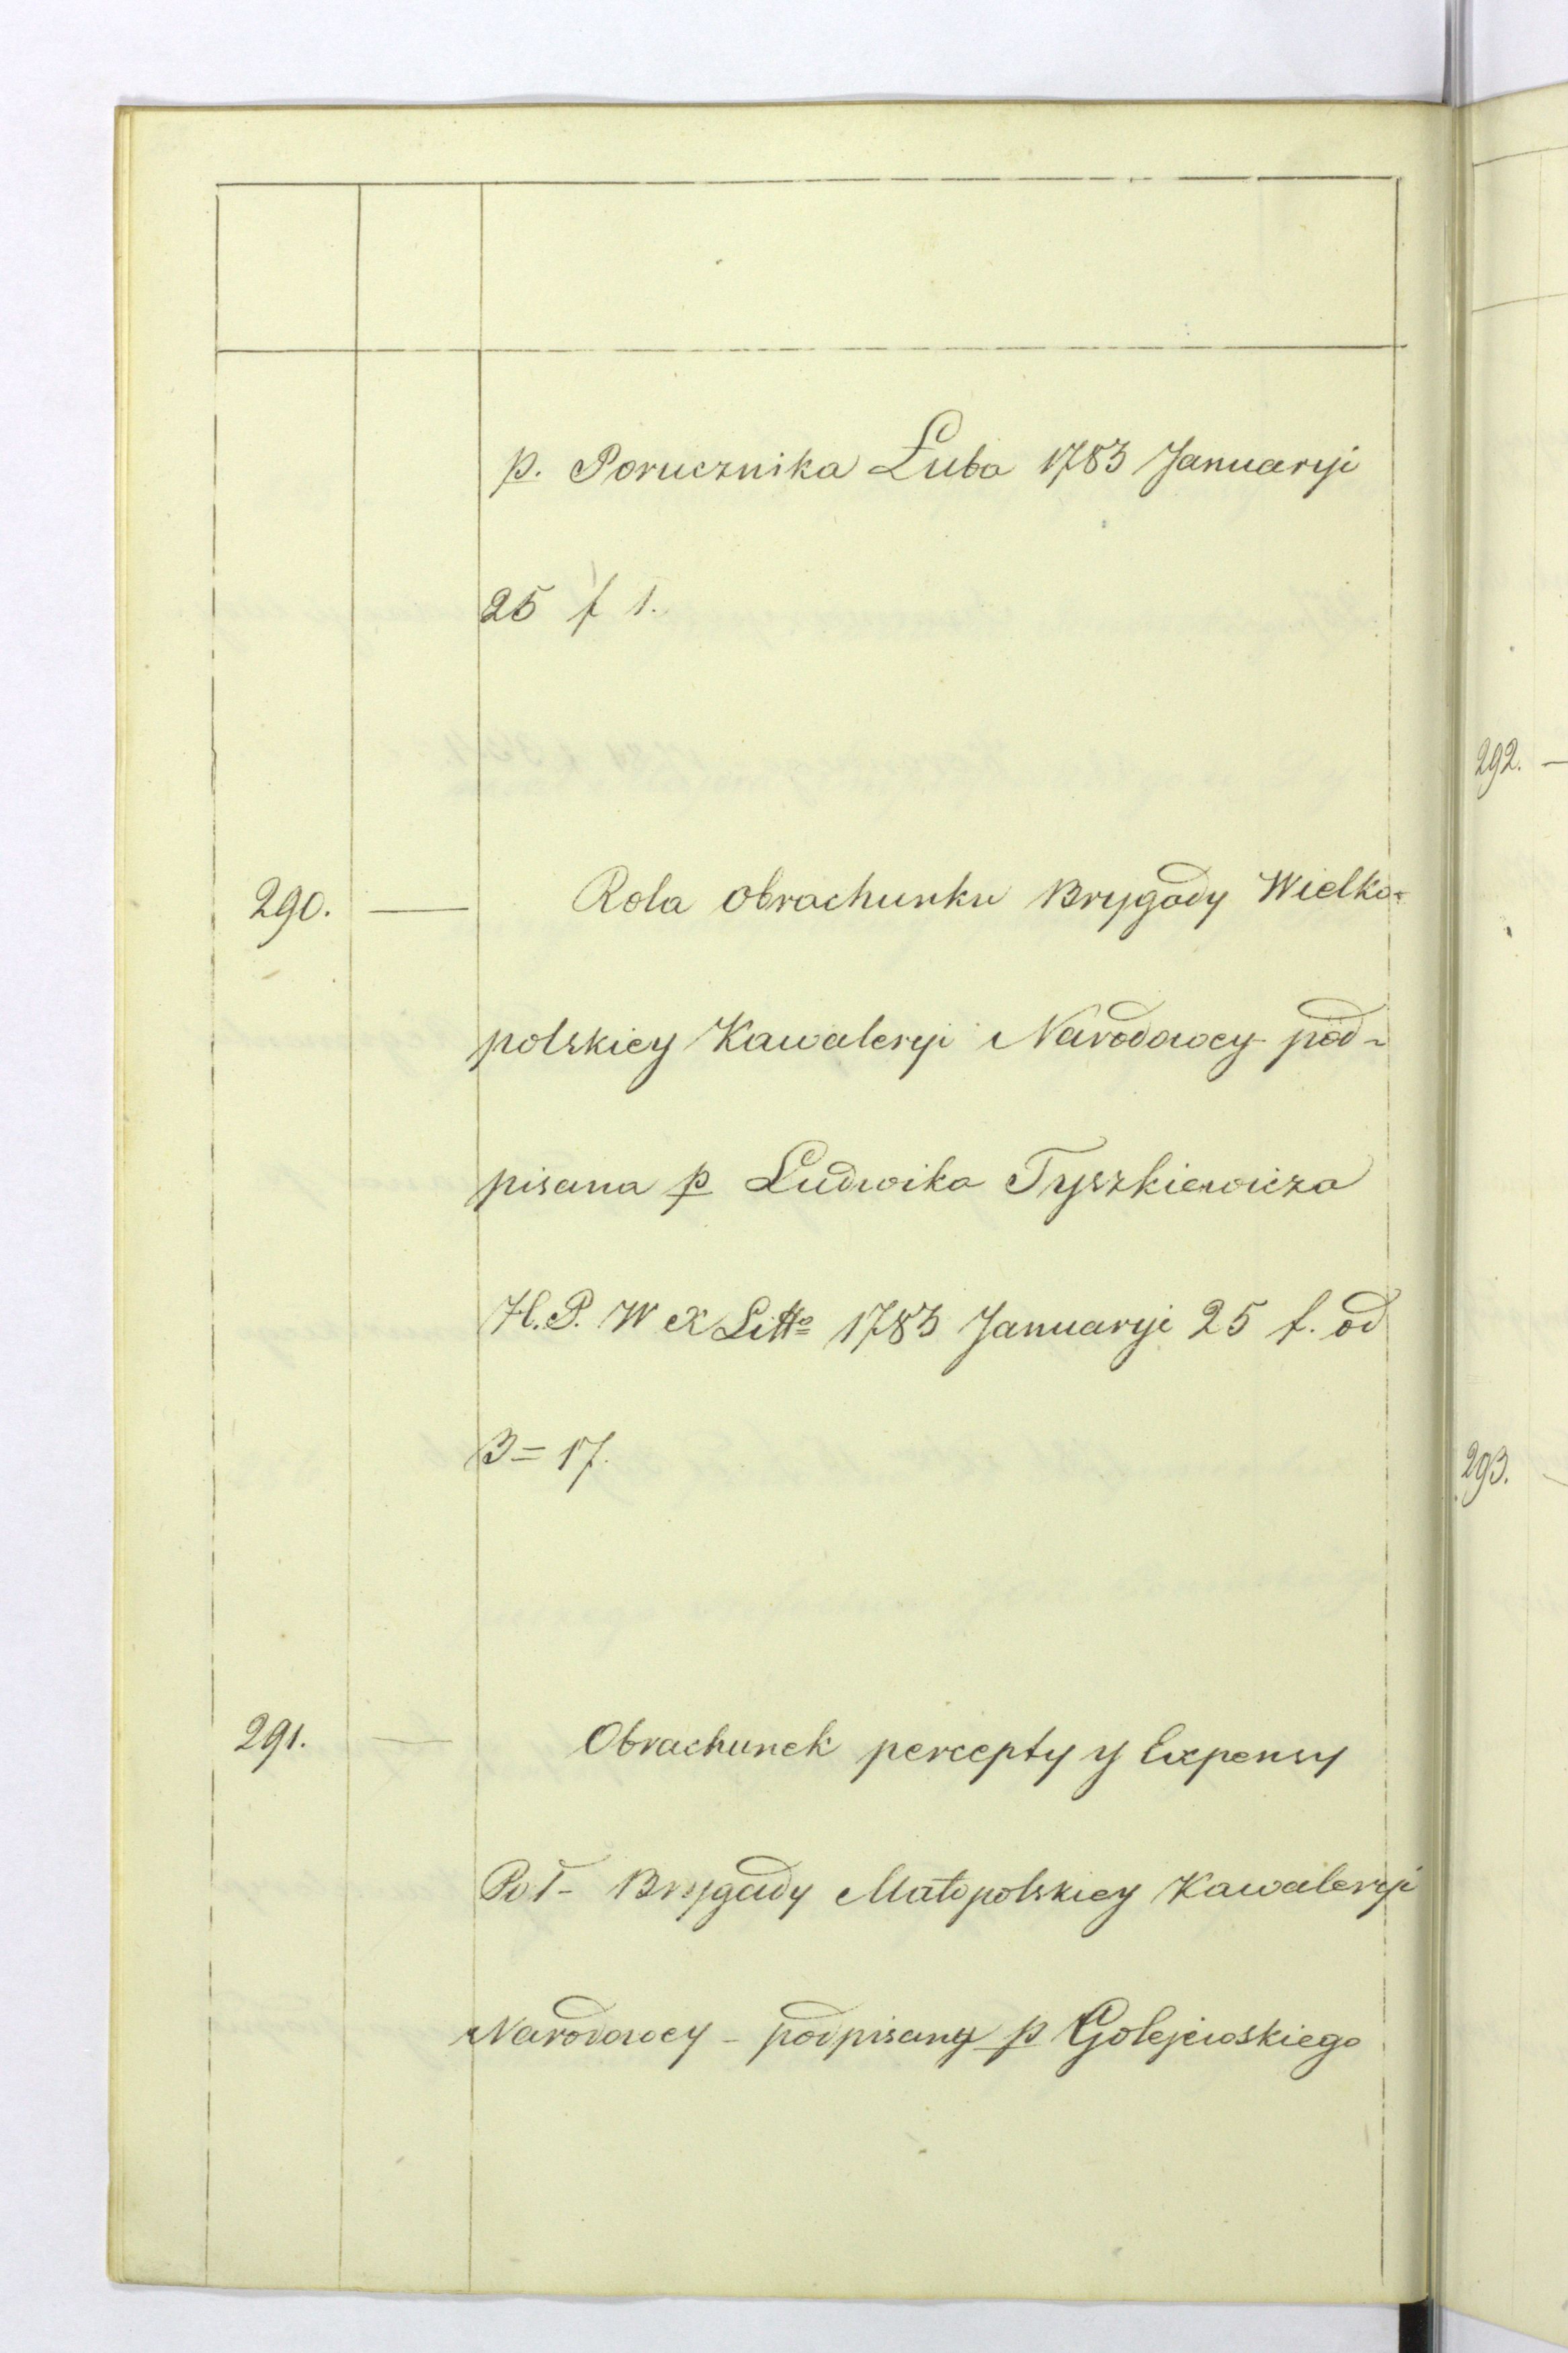 p. Porucznika Łuba 1783 Januaryi
25 f 1.
290. — Rola obrachunku Brygady Wielko=
polskiey Kawaleryi Narodowey pod-
pisana p Ludwika Tyszkiewicza
H. P. W X Litto 1783 Januaryi 25 f. od
3 = 17.
291. — Obrachunek percepty y Expensy
Poł- Brygady Małopolskiey Kawaleryi
Narodowey - podpisany p Golejewskiego
292. —
293.